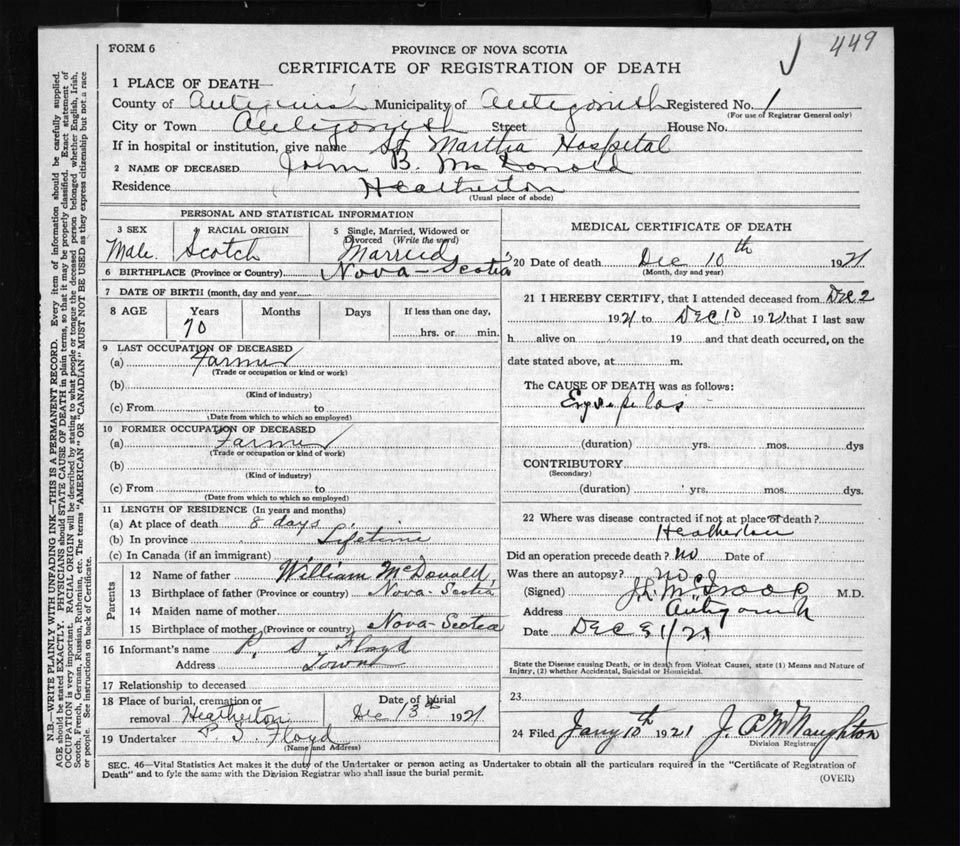 449
FORM 6
PROVINCE OF NOVA SCOTIA
CERTIFICATE OF REGISTRATION OF DEATH
1 PLACE OF DEATH—
County of Antigonish Municipality of Antigonish Registered No. 1
(For use of Registrar General only)
City or Town Antigonish Street House No.
If in hospital or institution, give name St. Martha Hospital
2 NAME OF DECEASED John B. McDonald
Residence Heatherton
(Usual place of abode)
PERSONAL AND STATISTICAL INFORMATION
3 SEX Male
RACIAL ORIGIN Scotch
5 Single, Married, Widowed or Divorced (Write the word) Married
6 BIRTHPLACE (Province or Country) Nova-Scotia
7 DATE OF BIRTH (month, day and year)
8 AGE Years Months Days If less than one day,
70 hrs. or min.
9 LAST OCCUPATION OF DECEASED
(a) Farmer
(Trade or occupation or kind or work)
(b)
(Kind of industry)
(c) From to
(Date from which to which so employed)
10 FORMER OCCUPATION OF DECEASED
(a) Farmer
(Trade or occupation or kind of work)
(b)
(Kind of industry)
(c) From to
(Date from which to which so employed)
11 LENGTH OF RESIDENCE (In years and months)
(a) At place of death 8 days
(b) In province Lifetime
(c) In Canada (if an immigrant)
Parents
12 Name of father William McDonald
13 Birthplace of father (Province or country) Nova-Scotia
14 Maiden name of mother
15 Birthplace of mother (Province or country) Nova-Scotia
16 Informant's name P. S. Floyd
Address Town
17 Relationship to deceased
18 Place of burial, cremation or removal Heatherton
Date of burial Dec 13th 1921
19 Undertaker P. S. Floyd
(Name and Address)
MEDICAL CERTIFICATE OF DEATH
20 Date of death Dec 10th 1921
(Month, day and year)
21 I HEREBY CERTIFY, that I attended deceased from Dec 2
1921 to Dec 10 1921 that I last saw
h alive on 19 and that death occurred, on the
date stated above, at m.
The CAUSE OF DEATH was as follows:
Erysipelas
(duration) yrs. mos. dys
CONTRIBUTORY
(Secondary)
(duration) yrs. mos. dys.
22 Where was disease contracted if not at place of death?
Heatherton
Did an operation precede death? no Date of
Was there an autopsy? no
(Signed) M.D.
Address Antigonish
Date DEC 31/21
State the Disease causing Death, or in death from Violent Causes, state (1) Means and Nature of
Injury, (2) whether Accidental, Suicidal or Homicidal.
23
24 Filed Jany 10th 1921 J. P. McNaughton
Division Registrar
SEC. 46—Vital Statistics Act makes it the duty of the Undertaker or person acting as Undertaker to obtain all the particulars required in the "Certificate of Registration of
Death" and to fyle the same with the Division Registrar who shall issue the burial permit.
(OVER)
N.B.—WRITE PLAINLY WITH UNFADING INK—THIS IS A PERMANENT RECORD. Every item of information should be carefully supplied.
AGE should be stated EXACTLY. PHYSICIANS should STATE CAUSE OF DEATH in plain terms, so that it may be properly classified. Exact statement of
OCCUPATION is very important. RACIAL ORIGIN will be described by stating to what people or tongue the deceased person belonged whether English, Irish,
Scotch, French, German, Russian, Ruthenian, etc. The terms "AMERICAN" OR "CANADIAN" MUST NOT BE USED as they express citizenship but not a race
or people. See instructions on back of Certificate.